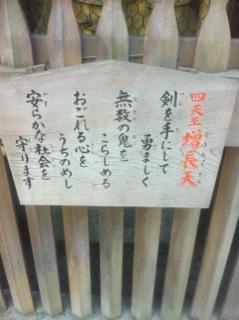 四天王 増長天
剣を手にして
勇ましく
無数の鬼を
こらしめる
おごれる心を
うちのめし
安らかな社会を
守ります